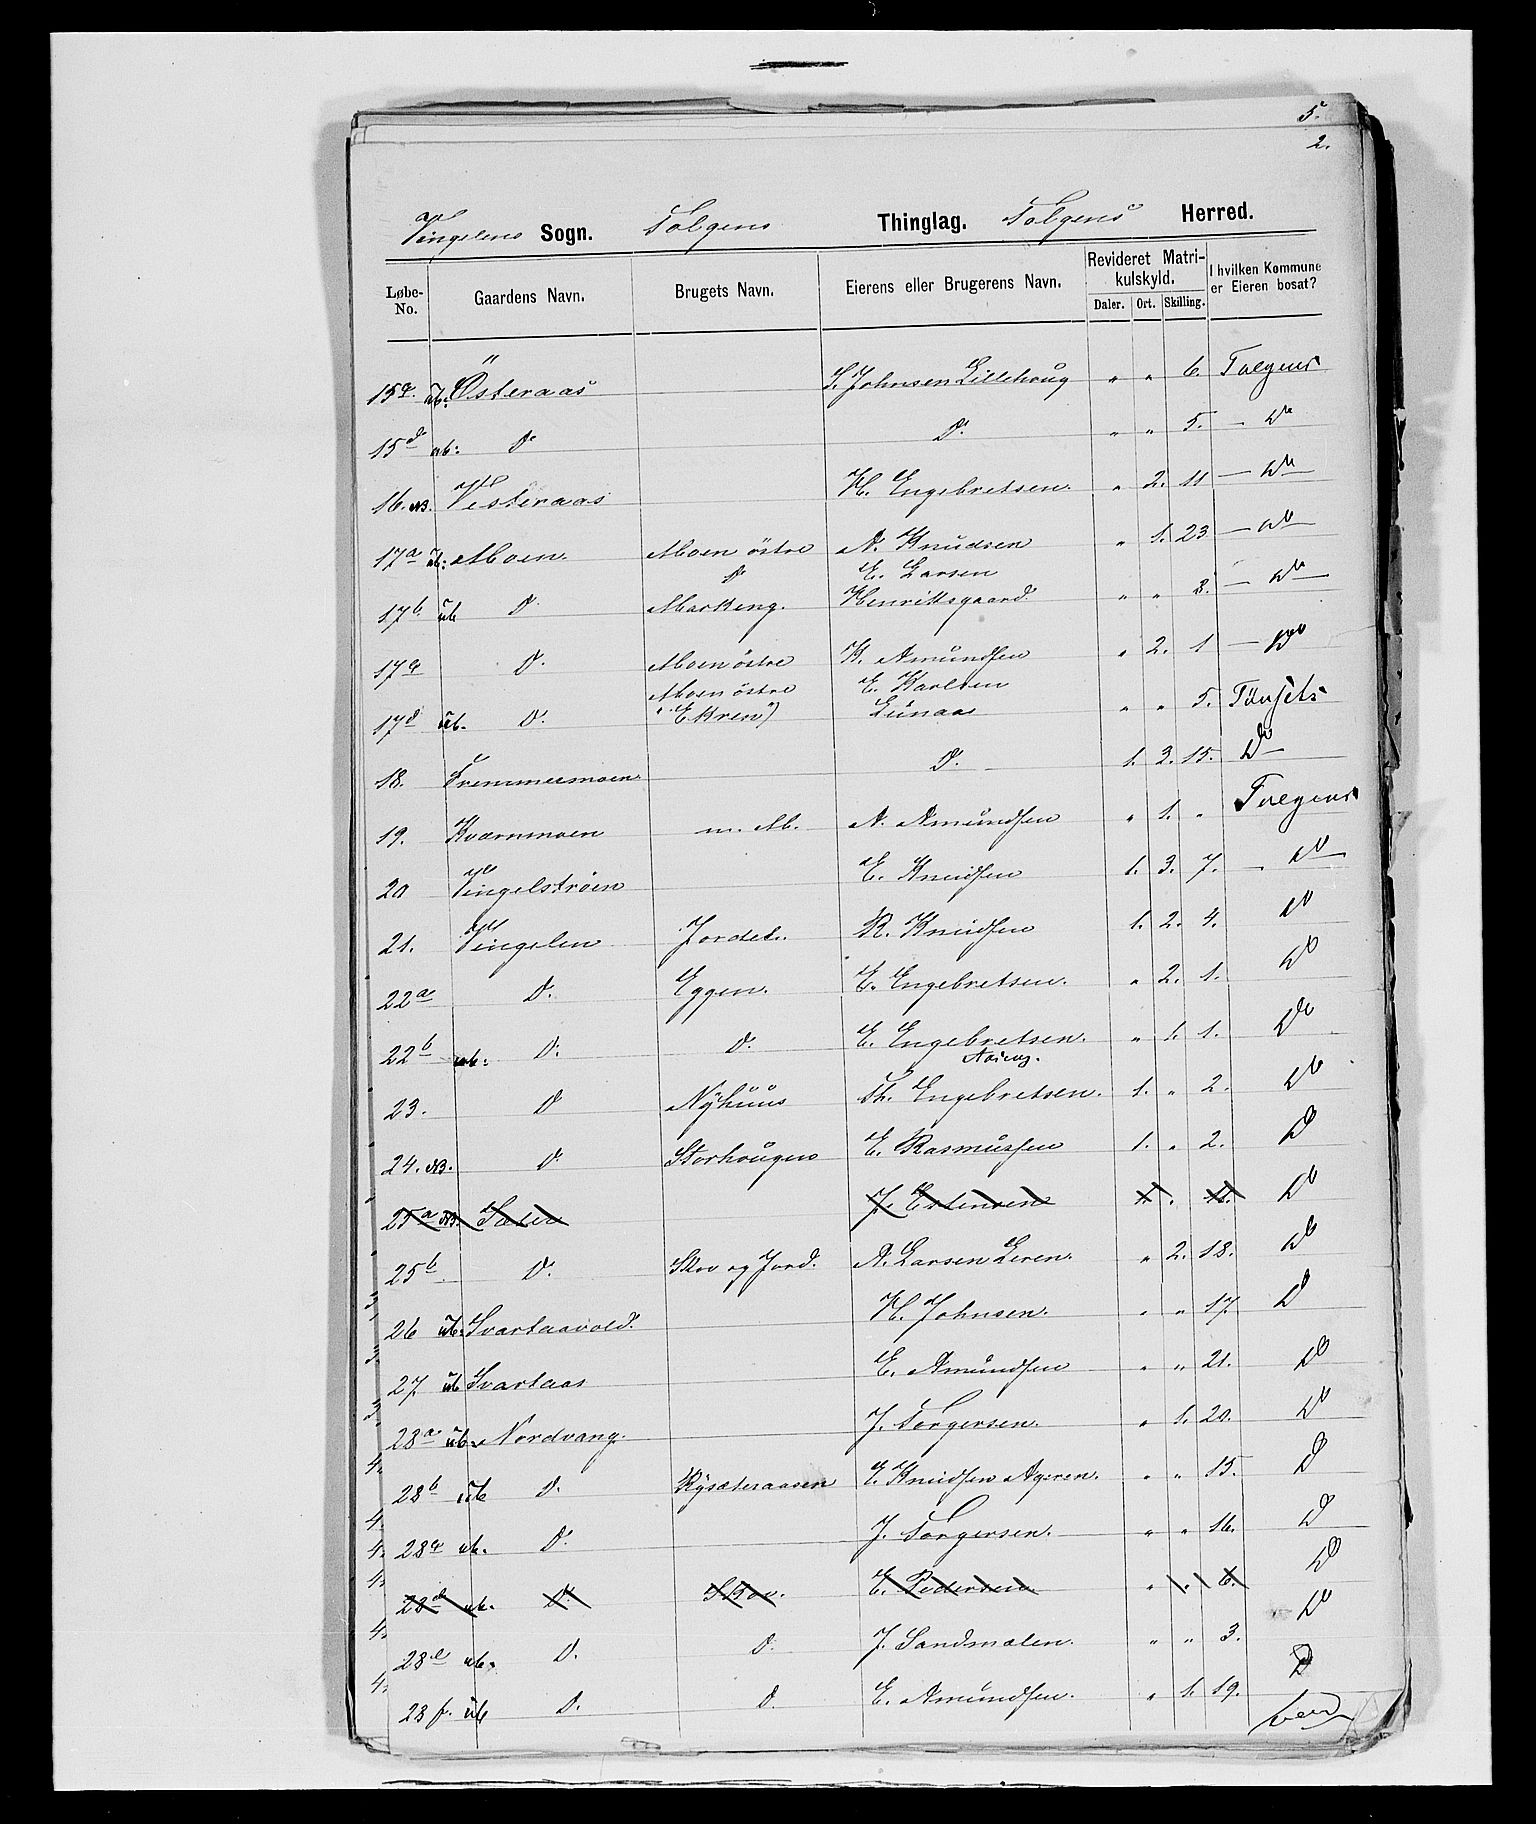 5.
2.
Vingelens Sogn. Tolgens Thinglag. Tolgens Herred.
Løbe-No. Gaardens Navn. Brugets Navn. Eierens eller Brugerens Navn. Revideret Matrikulskyld. Daler. Ort. Skilling. I hvilken Kommune er Eieren bosat?
15c. ub: Østeraas S. Johnsen Lillehoug " " 6. Tolgens
15d ub: Do Do. " " 5. — Do
16. NB. Vesteraas H. Engebretsen. " 2. 11 — Do
17a ub: Moen. Moen östre N. Knudsen " 1. 23 — Do —
Do E. Larsen
17b ub Do. Mask eng. Henriksgaard " " 8. — Do —
17c Do. Moen östre K. Amundsen " 2. 1 — Do
Moen östre E. Karlsen
17d ub. Do. "Ekren") Lunaas " " 5. Tönsets
18. Fremmermoen Do. 1. 3. 15. Do —
19. Kvernmoen m. M. N. Amundsen " 1. " Tolgens
20 Vingelströen E. Knudsen 1. 3. 7. — Do —
21. Vingelen Jordet. R. Knudsen 1. 2. 4. Do
22a Do. Eggen. E. Engebretsen. " 2. 1. Do
22b ub: Do. Do. E. Engebretsen. " 1. 1. Do
23. Do Nÿhuus Th. Engebretsen. 1. " 2. Do
24. NB. Do. Storhougen E. Rasmussen 1. " 2. Do
25a NB. Sæter J. Estensen Do
25b Do. Skov og Jord. A. Larsen Leren. " 2. 18. Do
26 ub. Svartaavold. H. Johnsen. " " 17. Do
27. ub Svartaas E. Amundsen " " 21. Do
28a ub. Nordvang. J. Torgersen. " 1. 20. Do
28b ub Do. Rÿsæteraasen E. Knudsen Ageren. " " 15. Do
28c ub. Do. J. Torgersen. " " 16. Do
28d ub. Do. Skov. E. Pedersen " " 6. Do
28e ub. Do. Do. J. Sandmælen. " " 3. Do
28f. ub Do. Do. E. Amundsen. " 1. 19. Do